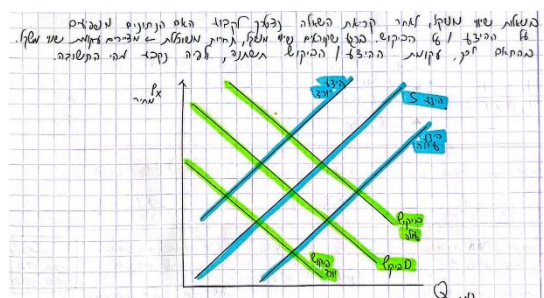 בשאלות שיווי משקל, לאחר קריאת השאלה נצטרך לקבוע האם הנתונים משפיעים
על ההיצע / על הביקוש. ברגע שקוראים שיווי משקל, תחרות משוכללת ← מציירים עקומת שיווי משקל.
בהתאם לכך, עקומת ההיצע / הביקוש תשתנה, ולפיה נקבע מהי התשובה.
Px
מחיר
היצע
יורד
היצע S
היצע
עולה
ביקוש
עולה
ביקוש D
ביקוש
יורד
Q